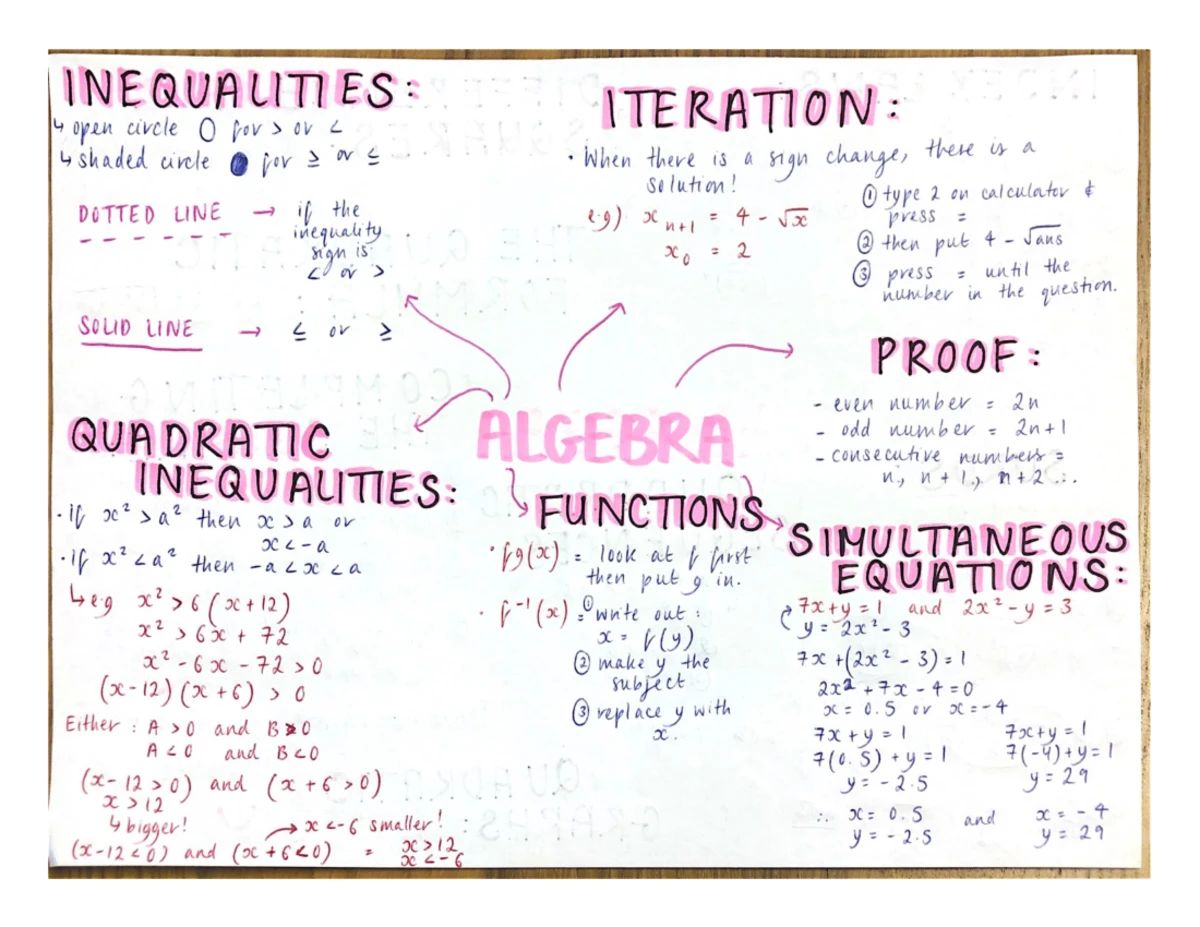 INEQUALITIES:
↳ open circle O for > or <
↳ shaded circle ● for ≥ or ≤
DOTTED LINE → if the
inequality
sign is
< or >
SOLID LINE → ≤ or ≥
ITERATION:
• When there is a sign change, there is a
solution!
e.g) x n+1 = 4 - √x
x₀ = 2
① type 2 on calculator &
press =
② then put 4 - √ans
③ press = until the
number in the question.
PROOF:
- even number = 2n
- odd number = 2n+1
- consecutive numbers =
n, n+1, n+2...
ALGEBRA
QUADRATIC
INEQUALITIES:
• if x² > a² then x > a or
x < -a
• if x² < a² then -a < x < a
↳ e.g x² > 6(x+12)
x² > 6x + 72
x² - 6x - 72 > 0
(x-12)(x+6) > 0
Either : A > 0 and B > 0
A < 0 and B < 0
(x-12 > 0) and (x+6 > 0)
x > 12
↳ bigger! → x < -6 smaller!
(x-12 < 0) and (x+6 < 0) = x > 12
x < -6
FUNCTIONS
• fg(x) = look at f first
then put g in.
• f⁻¹(x) = ① write out :
x = f(y)
② make y the
subject
③ replace y with
x.
SIMULTANEOUS
EQUATIONS:
7x+y = 1 and 2x² - y = 3
y = 2x² - 3
7x + (2x² - 3) = 1
2x² + 7x - 4 = 0
x = 0.5 or x = -4
7x + y = 1
7(0.5) + y = 1
y = -2.5
7x+y = 1
7(-4)+y = 1
y = 29
∴ x = 0.5 and x = -4
y = -2.5 y = 29